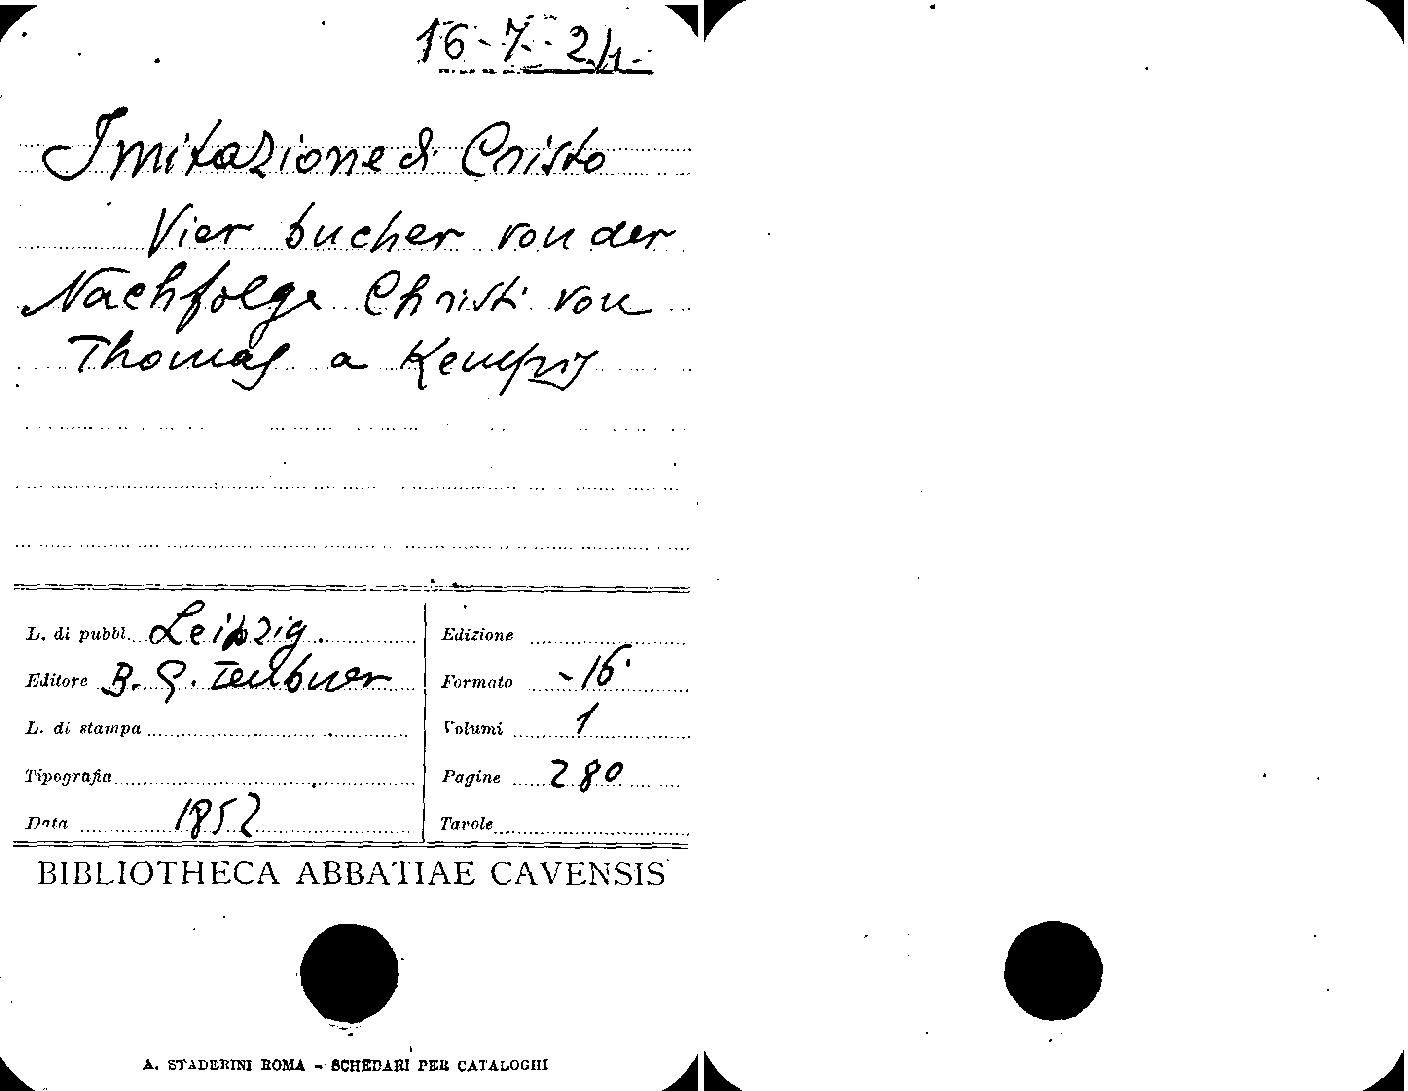 16-7-24-
Imitazione di Cristo
Vier bucher von der
Nachfolge Christi von
Thomas a Kempis
L. di pubbl. Leipzig.
Editore B. G. Teubner
L. di stampa
Tipografia
Data 1852
Edizione
Formato -16°
Volumi 1
Pagine 280
Tavole
BIBLIOTHECA ABBATIAE CAVENSIS
A. STADERINI ROMA - SCHEDARI PER CATALOGHI